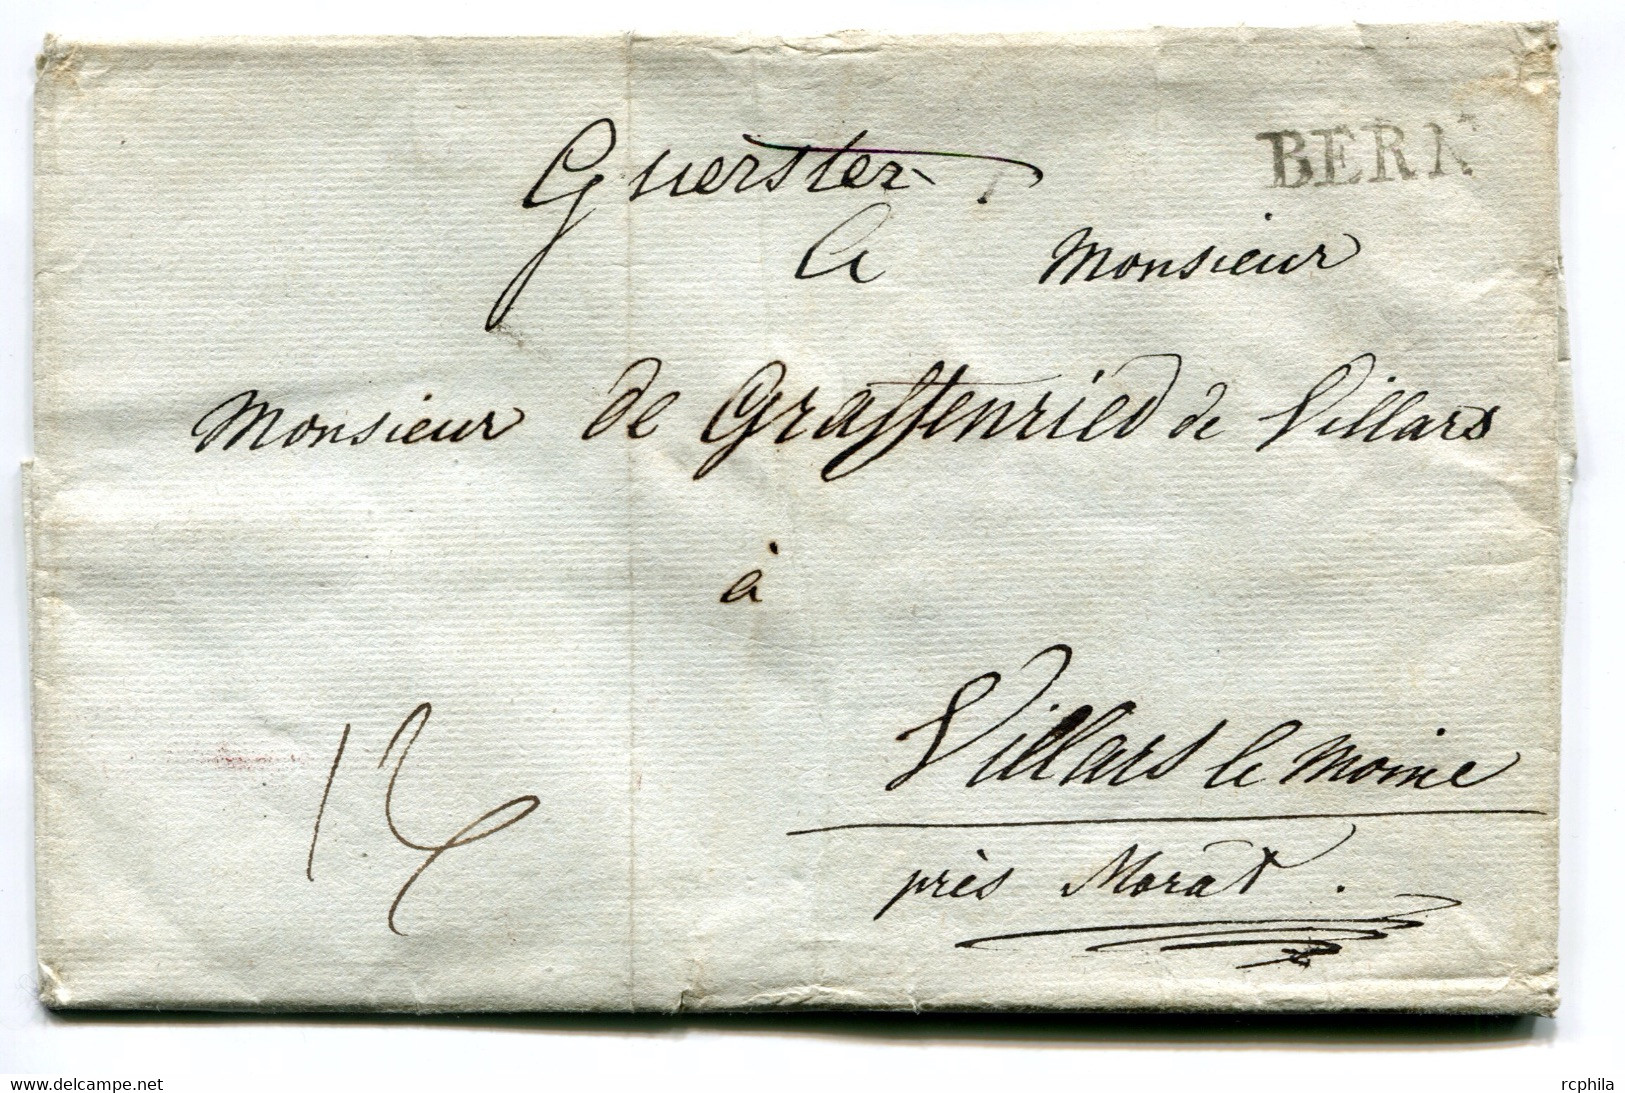 BERN
Guerster
A Monsieur
Monsieur de Graffenried de Villars
à
Villars le moine
près Morat.
www.delcampe.net
rcphila